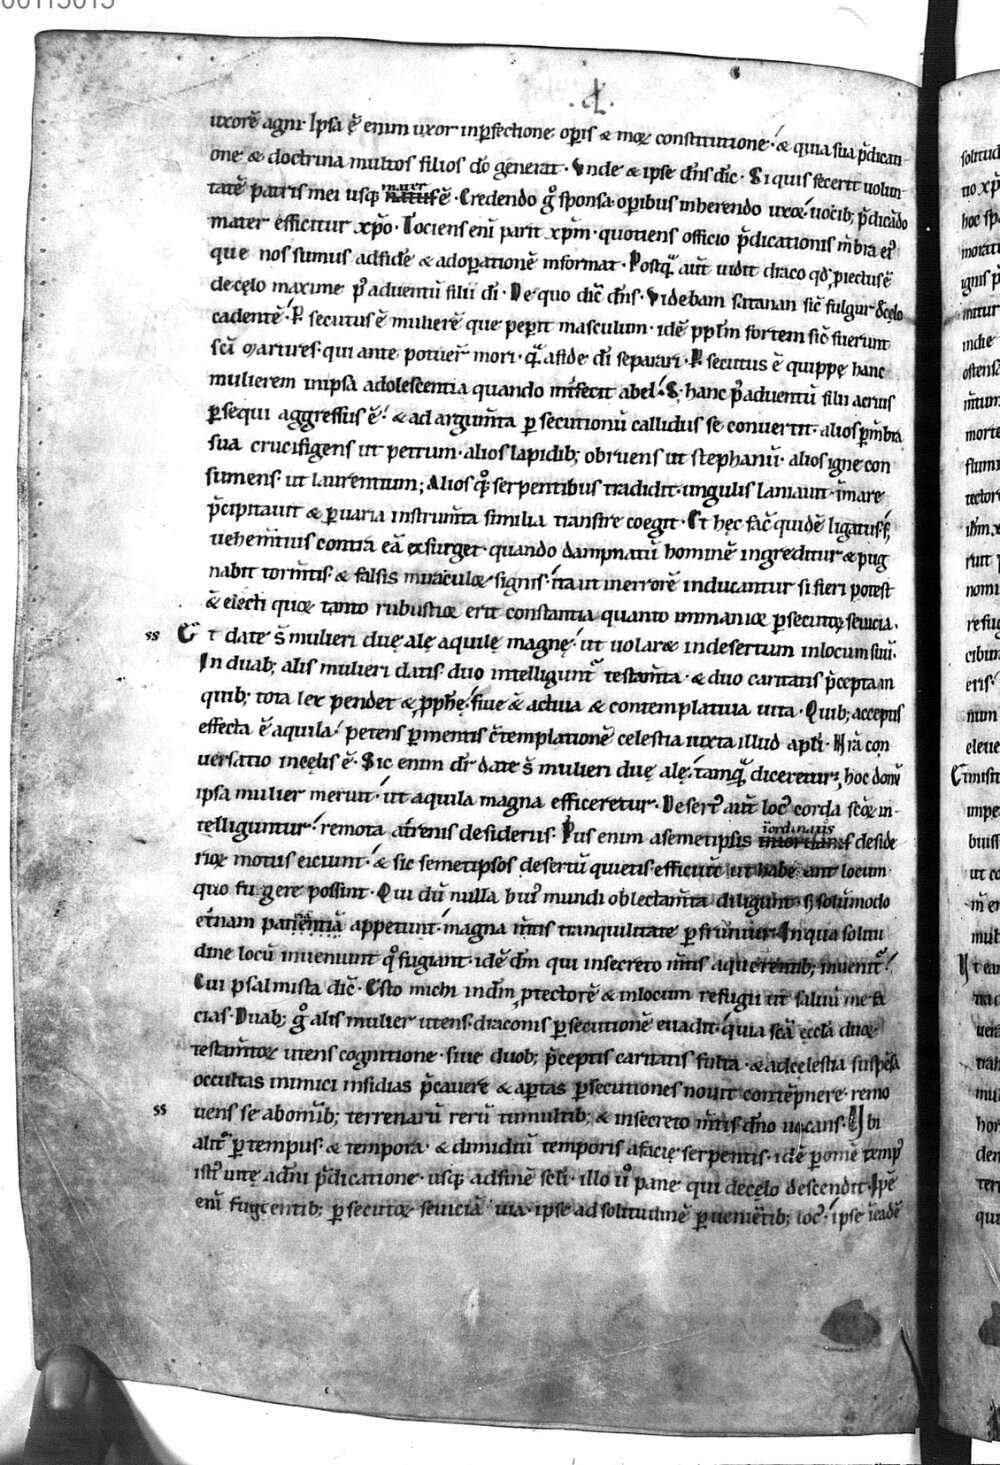 00113013
.d.
uxorē agni· Ipsa ē enim uxor inp̄fectione op̄is & moꝝ constitutione· & quia sua p̄dicati-
one & doctrina multos filios dō generat· Unde & ipse dn̄s dic̄· Si quis fecerit uolun-
tatē patris mei usq; mater ē· Credendo gͦ sponsa· operibus inherendo uxor· uocib; p̄dicādo
mater efficitur xp̄o· Tociens eni parit xp̄m· quotiens officio p̄dicationis m̄bra eiꝰ
que nos sumus ad fidē & ad operationē informat· Postqͣ aut̄ uidit draco qd̄ piectus ē
de cęlo maxime pꝰ aduentū filii dī· De quo dic̄ dn̄s· Videbam satanan sic̄ fulgur de cęlo
cadentē· ꝑsecutus ē mulierē que peperit masculum· idē pp̄lm fortem sic̄ fuerunt
sc̄i martires· qui ante potuer̄ mori· qͣ a fide dī separari· ꝑsecutus ē quippe hanc
mulierem in ipsa adolescentia quando int̄fecit abel· S; hanc pꝰ aduentū filii acrius
ꝑsequi aggressus ē· & ad argum̄ta ꝑsecutionū callidus se conuertit· alios ꝑ m̄bra
sua crucifigens ut petrum· alios lapidib; obruens ut stephanū· alios igne con
sumens· ut laurentium; Alios qͦ; serpentibus tradidit· ungulis laniauit· in mare
p̄cipitauit & ꝑ uaria instrum̄ta similia transire coegit· Et hęc fac̄ quidē ligatus· s;
uehem̄tius contra eā exsurget· quando dampnatū hominē ingreditur & pug
nabit torm̄tis· & falsis miraculoꝝ signis· ita ut in errorē inducantur si fieri potest
& electi quoꝝ tanto rubustioꝝ erit constantia quanto immanioꝝ ꝑsecutoꝝ seuicia·
ss Et datę s̄ mulieri duę alę aquilę magnę· ut uolaret in desertum in locum suū·
In duab; alis mulieri datis· duo intelligunt̄ testam̄ta· & duo caritatis p̄cepta in
quib; tota lex pendet & ꝓphę· siue & actiua & contemplatiua uita· Quib; acceptis
effecta ē aquila· petens ꝑ mentis c̄templationē celestia iuxta illud apl̄i· Nr̄a con
uersatio in cęlis ē· Sic enim dr̄ datę s̄ mulieri duę alę· tamqͣ diceretur; hoc donū
ipsa mulier meruit· ut aquila magna efficeretur· Desertꝰ aut̄ locꝰ corda sc̄oꝝ in-
telliguntur· remota a t̄renis desideriis· Pius enim a semetipsis inordinatis deside
rioꝝ motus eiciunt· & sic semetipsos desertū quietis efficiūt ut habeant locum
quo fugere possint· Qui dū nulla huiꝰ mundi oblectam̄ta diligunt· s; solūmodo
et̄nam patriā appetunt· magna m̄tis tranquilitate ꝑfruuntur· In qua solitu
dine locū inueniunt qͦ fugiant· idē dn̄m qui in secreto m̄tis a querentib; inuenit̄·
Cui psalmista dic̄· Esto michi in dm̄ ꝓtectorē & in locum refugii ut saluū me fa
cias· Duab; gͦ alis mulier utens· draconis ꝑsecutionē euadit· quia sc̄a eccl̄a duoꝝ
testam̄toꝝ utens cognitione· siue duob; p̄ceptis caritatis fulta· & ad celestia suspēsa
occultas inimici insidias p̄cauere & ap̄tas ꝑsecutiones nouit contēpnere· remo
ss uens se ab om̄ib; terrenarū rerū tumultib; & in secreto m̄tis dn̄o uacans· Ubi
alit̄ ꝑ tempus· & tempora· & dimidiū temporis a facie serpentis· idē ꝑ om̄e tempꝰ
istiꝰ uitę a dn̄i p̄dicatione· usq; ad finē scl̄i· illo uͦ pane qui de cęlo descendit· Ipē
eni fugientib; ꝑsecutoꝝ seuiciā uia· ipse ad solitudinē ꝑuenientib; locꝰ· ipse ī eadē